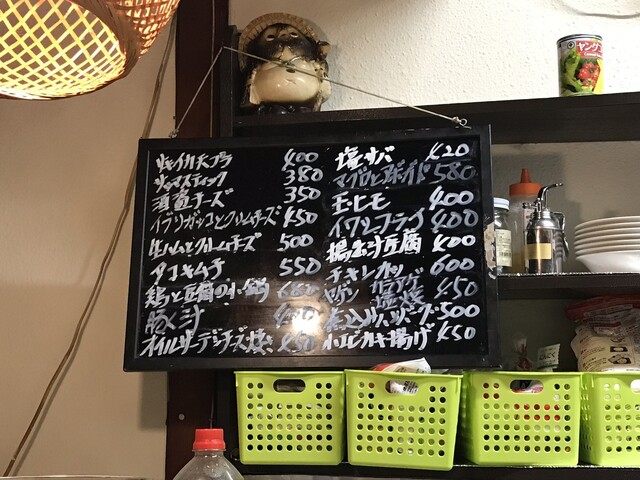 焼イカ天プラ 400
ツナマスティック 380
酒盗チーズ 350
イブリガッコとクリームチーズ 450
生ハムとクリームチーズ 500
タコキムチ 550
鶏と豆腐の小鍋 680
豚汁
オイルサーデンチーズ焼き 450
塩サバ 420
マグロとアボカド 580
エビモ 400
イワシフライ 400
揚出汁豆腐 400
チキンカツ 600
ヤゲン 唐アゲ 塩焼 450
煮込ハンバーグ 500
小エビカキ揚げ 450
ヤング